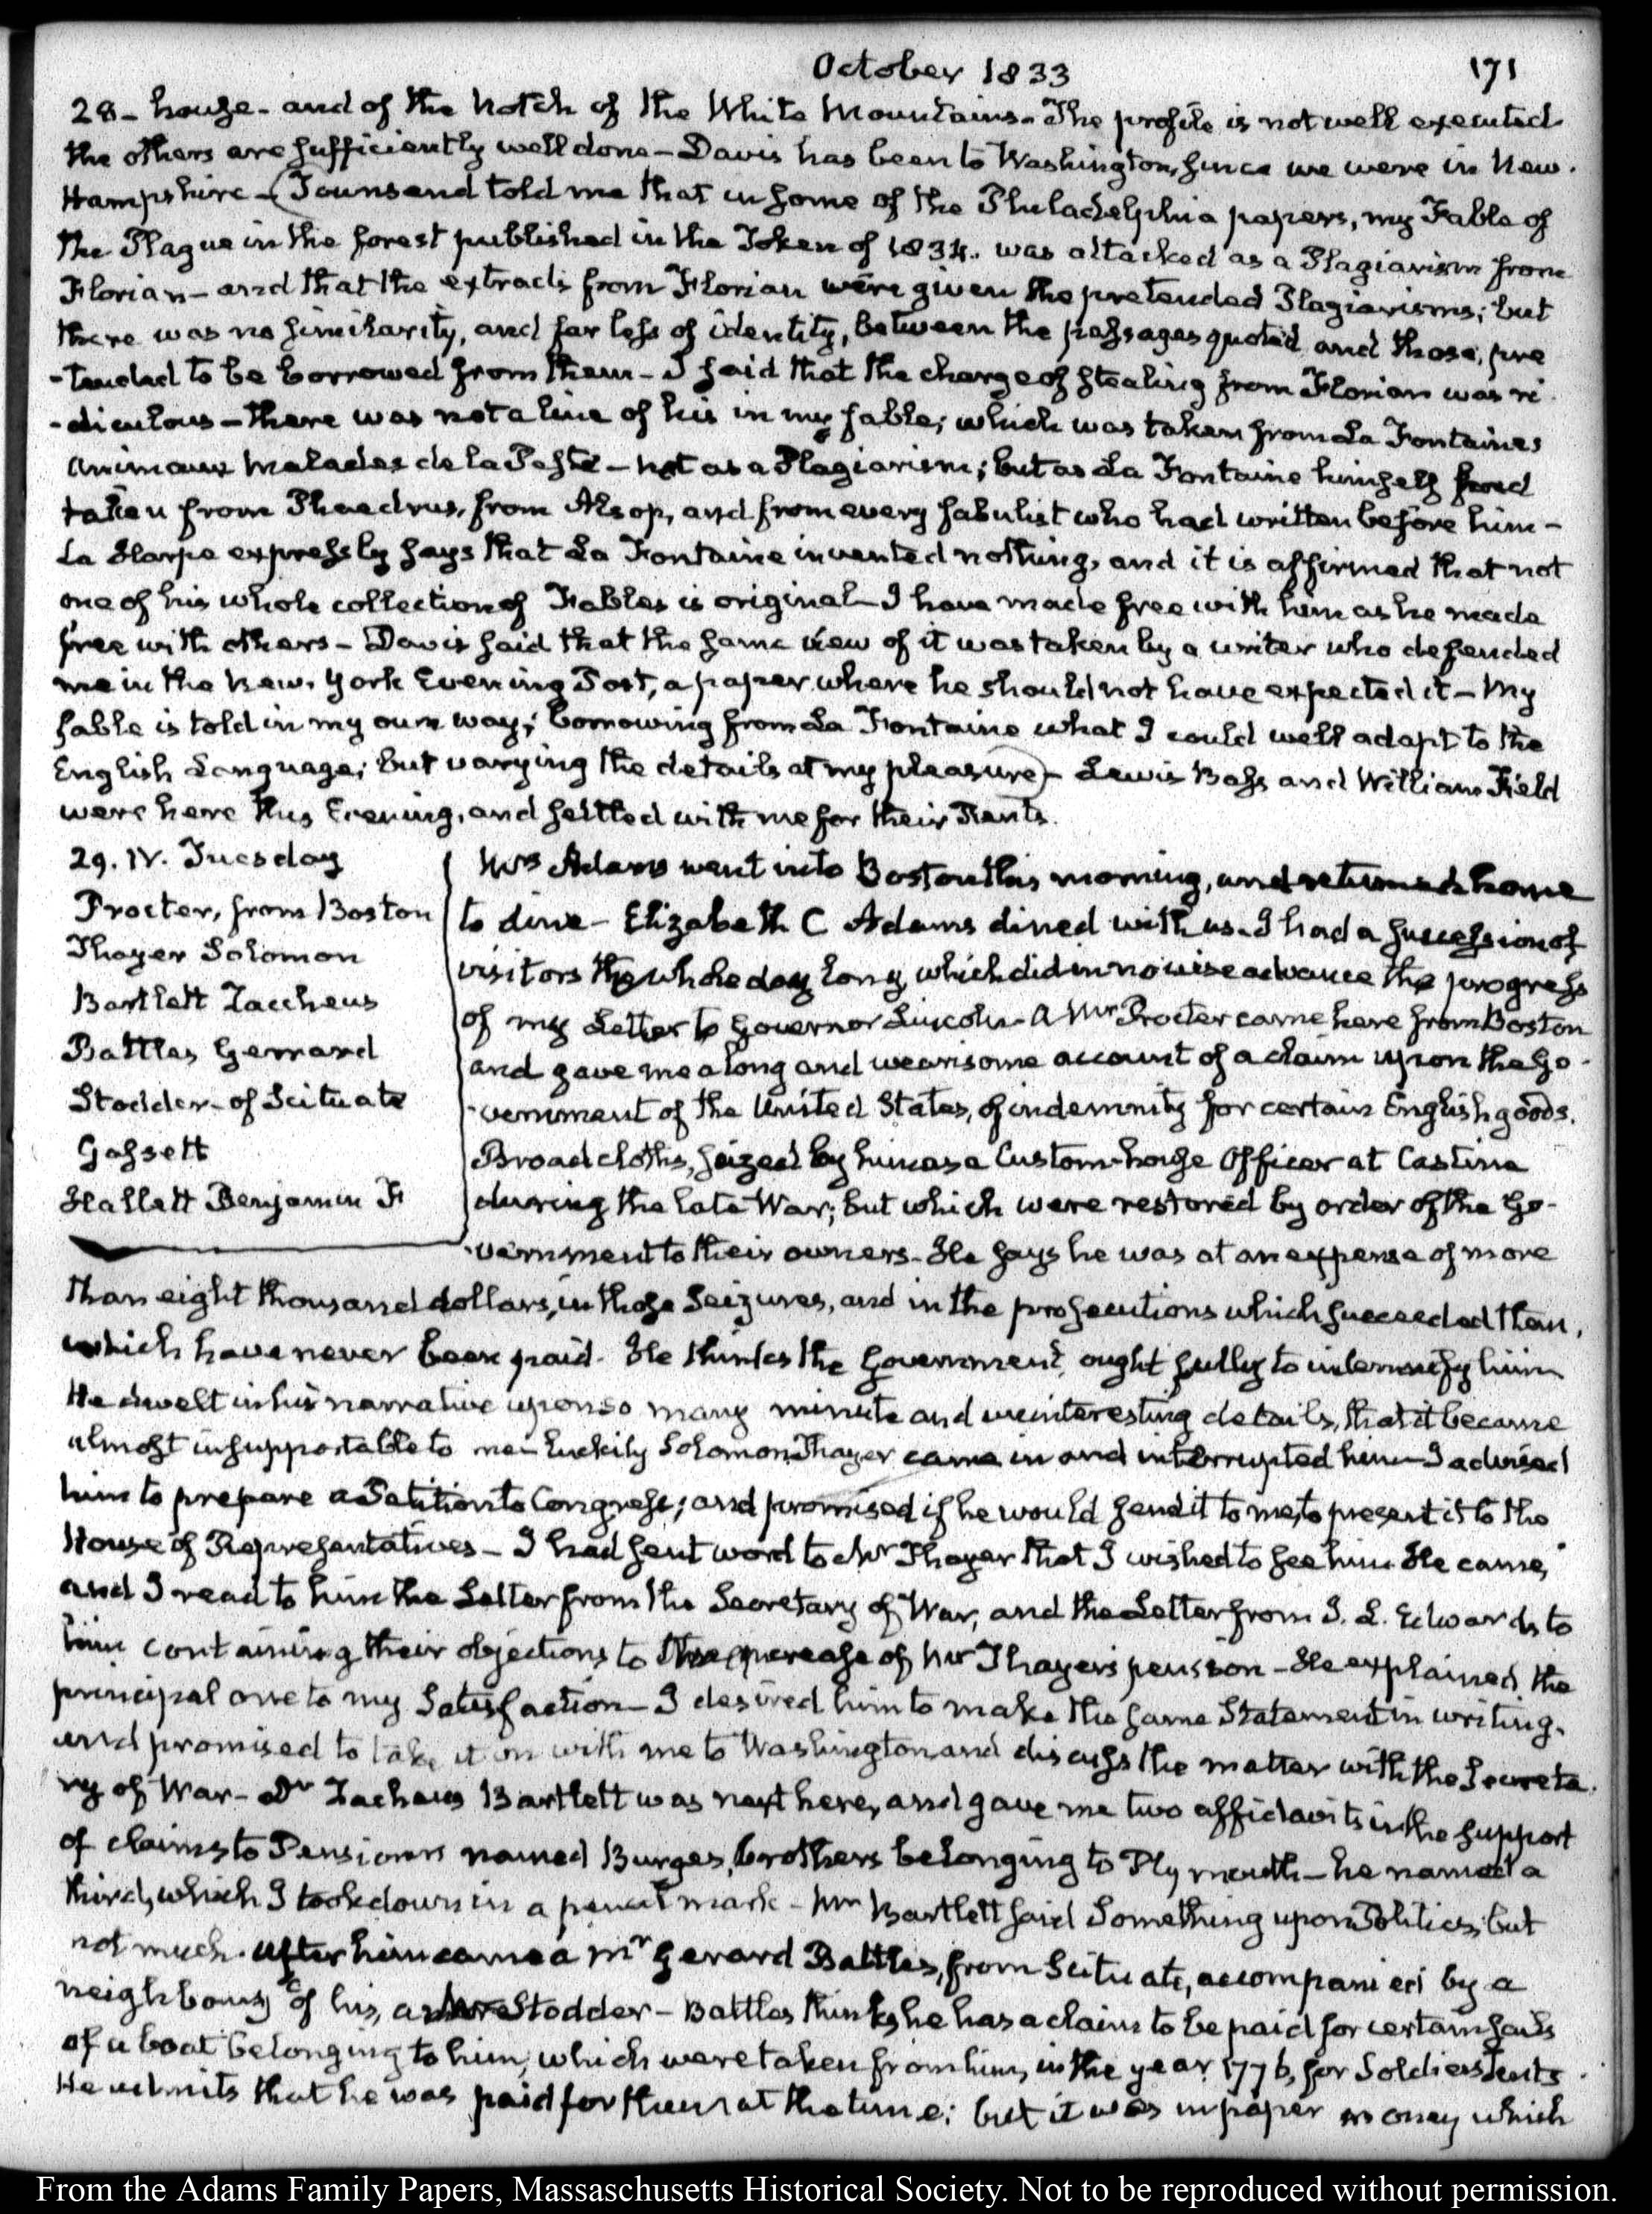 October 1833
171
28 - house - and of the Notch of the White Mountains - The profile is not well executed
the others are sufficiently well done - Davis has been to Washington, since we were in New.
Hampshire - (Townsend told me that in some of the Philadelphia papers, my Fable of
The Plague in the forest published in the Token of 1834. was attacked as a Plagiarism from
Florian - and that the extracts from Florian were given the pretended Plagiarisms; but
there was no similarity, and far less of identity, between the passages quoted and those, pre
-tended to be borrowed from them - I said that the charge of stealing from Florian was ri
-diculous - there was not a line of his in my fable; which was taken from La Fontaines
Animaux Malades de la Peste - not as a Plagiarism; but as La Fontaine himself had
taken from Phaedrus, from Aesop, and from every fabulist who had written before him -
La Harpe expressly says that La Fontaine invented nothing, and it is affirmed that not
one of his whole collection of Fables is original - I have made free with him as he made
free with others - Davis said that the same view of it was taken by a writer who defended
me in the New. York Evening Post, a paper where he should not have expected it - My
fable is told in my own way; borrowing from La Fontaine what I could well adapt to the
English Language; but varying the details at my pleasure) - Lewis Bass and William Field
were here this Evening, and settled with me for their Rents.
29. IV. Tuesday
Procter, from Boston
Thayer Solomon
Bartlett Zaccheus
Battles Gerrard
Stodder - of Scituate
Gassett
Hallett Benjamin F
Mrs Adams went into Boston this morning, and returned home
to dine - Elizabeth C Adams dined with us. I had a succession of
visitors the whole day long, which did in no wise advance the progress
of my Letter to Governor Lincoln - A Mr Procter came here from Boston
and gave me a long and wearisome account of a claim upon the Go-
-vernment of the United States, of indemnity for certain English goods.
Broad cloths, seized by him as a Custom-house Officer at Castine
during the late War; but which were restored by order of the Go-
-vernment to their owners - He says he was at an expense of more
than eight thousand dollars, in those Seizures, and in the prosecutions which succeeded them,
which have never been paid. He thinks the Government, ought fully to indemnify him
He dwelt in his narrative upon so many minute and uninteresting details, that it became
almost insupportable to me - luckily Solomon Thayer came in and interrupted him - I advised
him to prepare a Petition to Congress; and promised if he would send it to me, to present it to the
House of Representatives - I had sent word to Mr Thayer that I wished to see him. He came,
and I read to him the Letter from the Secretary of War, and the Letter from J. L. Edwards to
him containing their objections to the increase of Mr Thayer's pension - He explained the
principal one to my Satisfaction - I desired him to make the same Statement in writing.
and promised to take it on with me to Washington and discuss the matter with the Secreta.
ry of War - Dr Zacheus Bartlett was next here, and gave me two affidavits in the support
of claims to Pensions named Burges, brothers belonging to Plymouth - he named a
third, which I took down in a pencil mark - Mr Bartlett said Something upon Politics; but
not much. After him came a Mr Gerard Battles, from Scituate, accompanied by a
neighbour of his, a Mr Stodder - Battles thinks he has a claim to be paid for certain sails
of a boat belonging to him, which were taken from him, in the year 1776, for Soldiers Tents.
He admits that he was paid for them at the time; but it was in paper money which
From the Adams Family Papers, Massaschusetts Historical Society. Not to be reproduced without permission.